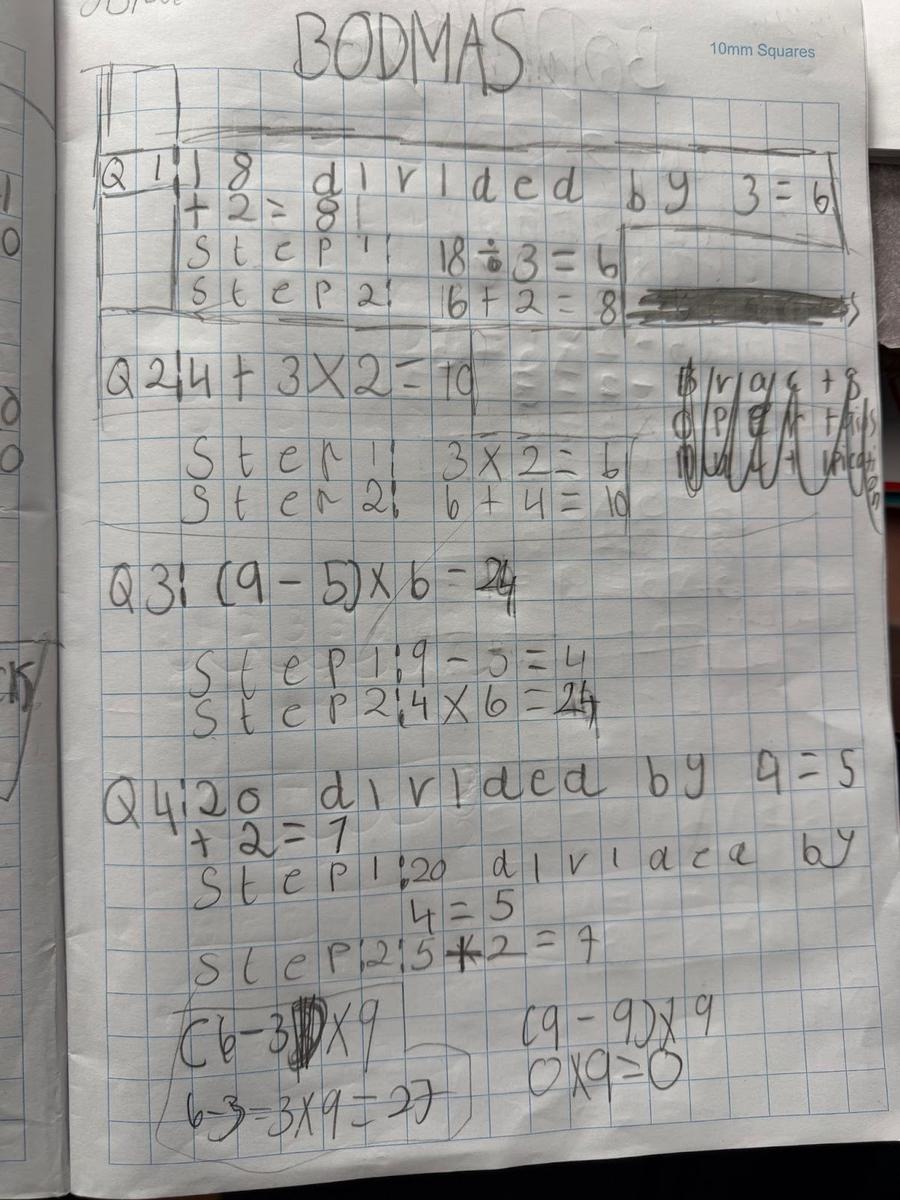 BODMAS
10mm Squares
Q1: 18 divided by 3 = 6
+ 2 = 8
Step 1: 18 ÷ 3 = 6
Step 2: 6 + 2 = 8
Q2: 4 + 3 × 2 = 10
Step 1: 3 × 2 = 6
Step 2: 6 + 4 = 10
Q3: (9 - 5) × 6 = 24
Step 1: 9 - 5 = 4
Step 2: 4 × 6 = 24
Q4: 20 divided by 4 = 5
+ 2 = 7
Step 1: 20 divided by
4 = 5
Step 2: 5 + 2 = 7
(6 - 3) × 9
6 - 3 = 3 × 9 = 27
(9 - 9) × 9
0 × 9 = 0